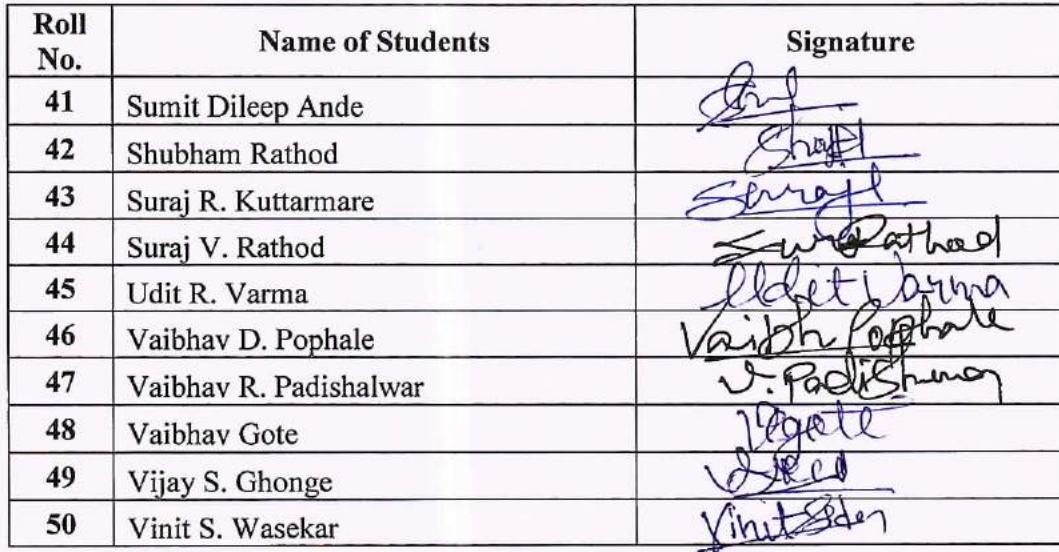 Roll No. Name of Students Signature
41 Sumit Dileep Ande
42 Shubham Rathod
43 Suraj R. Kuttarmare
44 Suraj V. Rathod Rathod
45 Udit R. Varma Udit Varma
46 Vaibhav D. Pophale Vaibh Pophale
47 Vaibhav R. Padishalwar
48 Vaibhav Gote Vgote
49 Vijay S. Ghonge
50 Vinit S. Wasekar Vinit